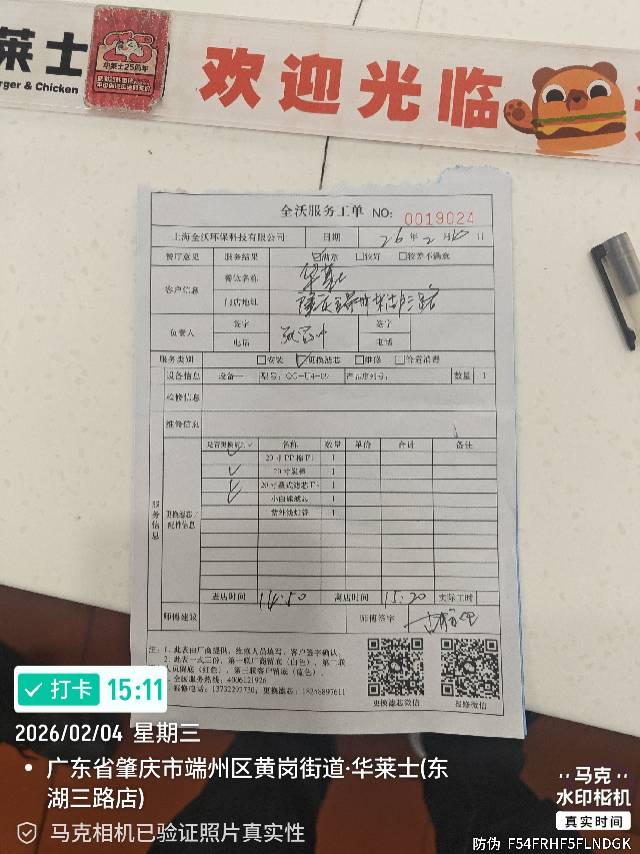 莱士
rger & Chicken
华莱士25周年
欢迎光临
全沃服务工单 NO: 0019024
上海全沃环保科技有限公司 日期 26年2月 日
餐厅意见 服务结果 ☑满意 □较好 □较差不满意
客户信息 餐饮名称 华莱士
门店地址
负责人 签字 签字
电话 电话
服务类别 □安装 ☑更换滤芯 □维修 □管道消费
设备信息 设备一 型号: 产品序列号: 数量 1
检修信息
维修信息
服务信息
更换滤芯/配件信息
是否更换 名称 数量 单价 合计 备注
20寸PP棉 1
20寸 1
20寸 滤芯 1
1
紫外线灯管 1
进店时间 14:50 离店时间 15:20 实际工时
师傅建议 师傅签字
注:1、此表由厂商提供,维修人员填写,客户签字确认。
2、此表一式三份,第一联厂商留底(白色),第二联
人员留底(红色),第三联客户留底(蓝色)。
全国服务热线:4006121926
报修电话:13732293730;更换滤芯:18248897611
更换滤芯微信
报修微信
打卡 15:11
2026/02/04 星期三
广东省肇庆市端州区黄岗街道·华莱士(东
湖三路店)
马克相机已验证照片真实性
马克
水印相机
真实时间
防伪 F54FRHF5FLNDGK